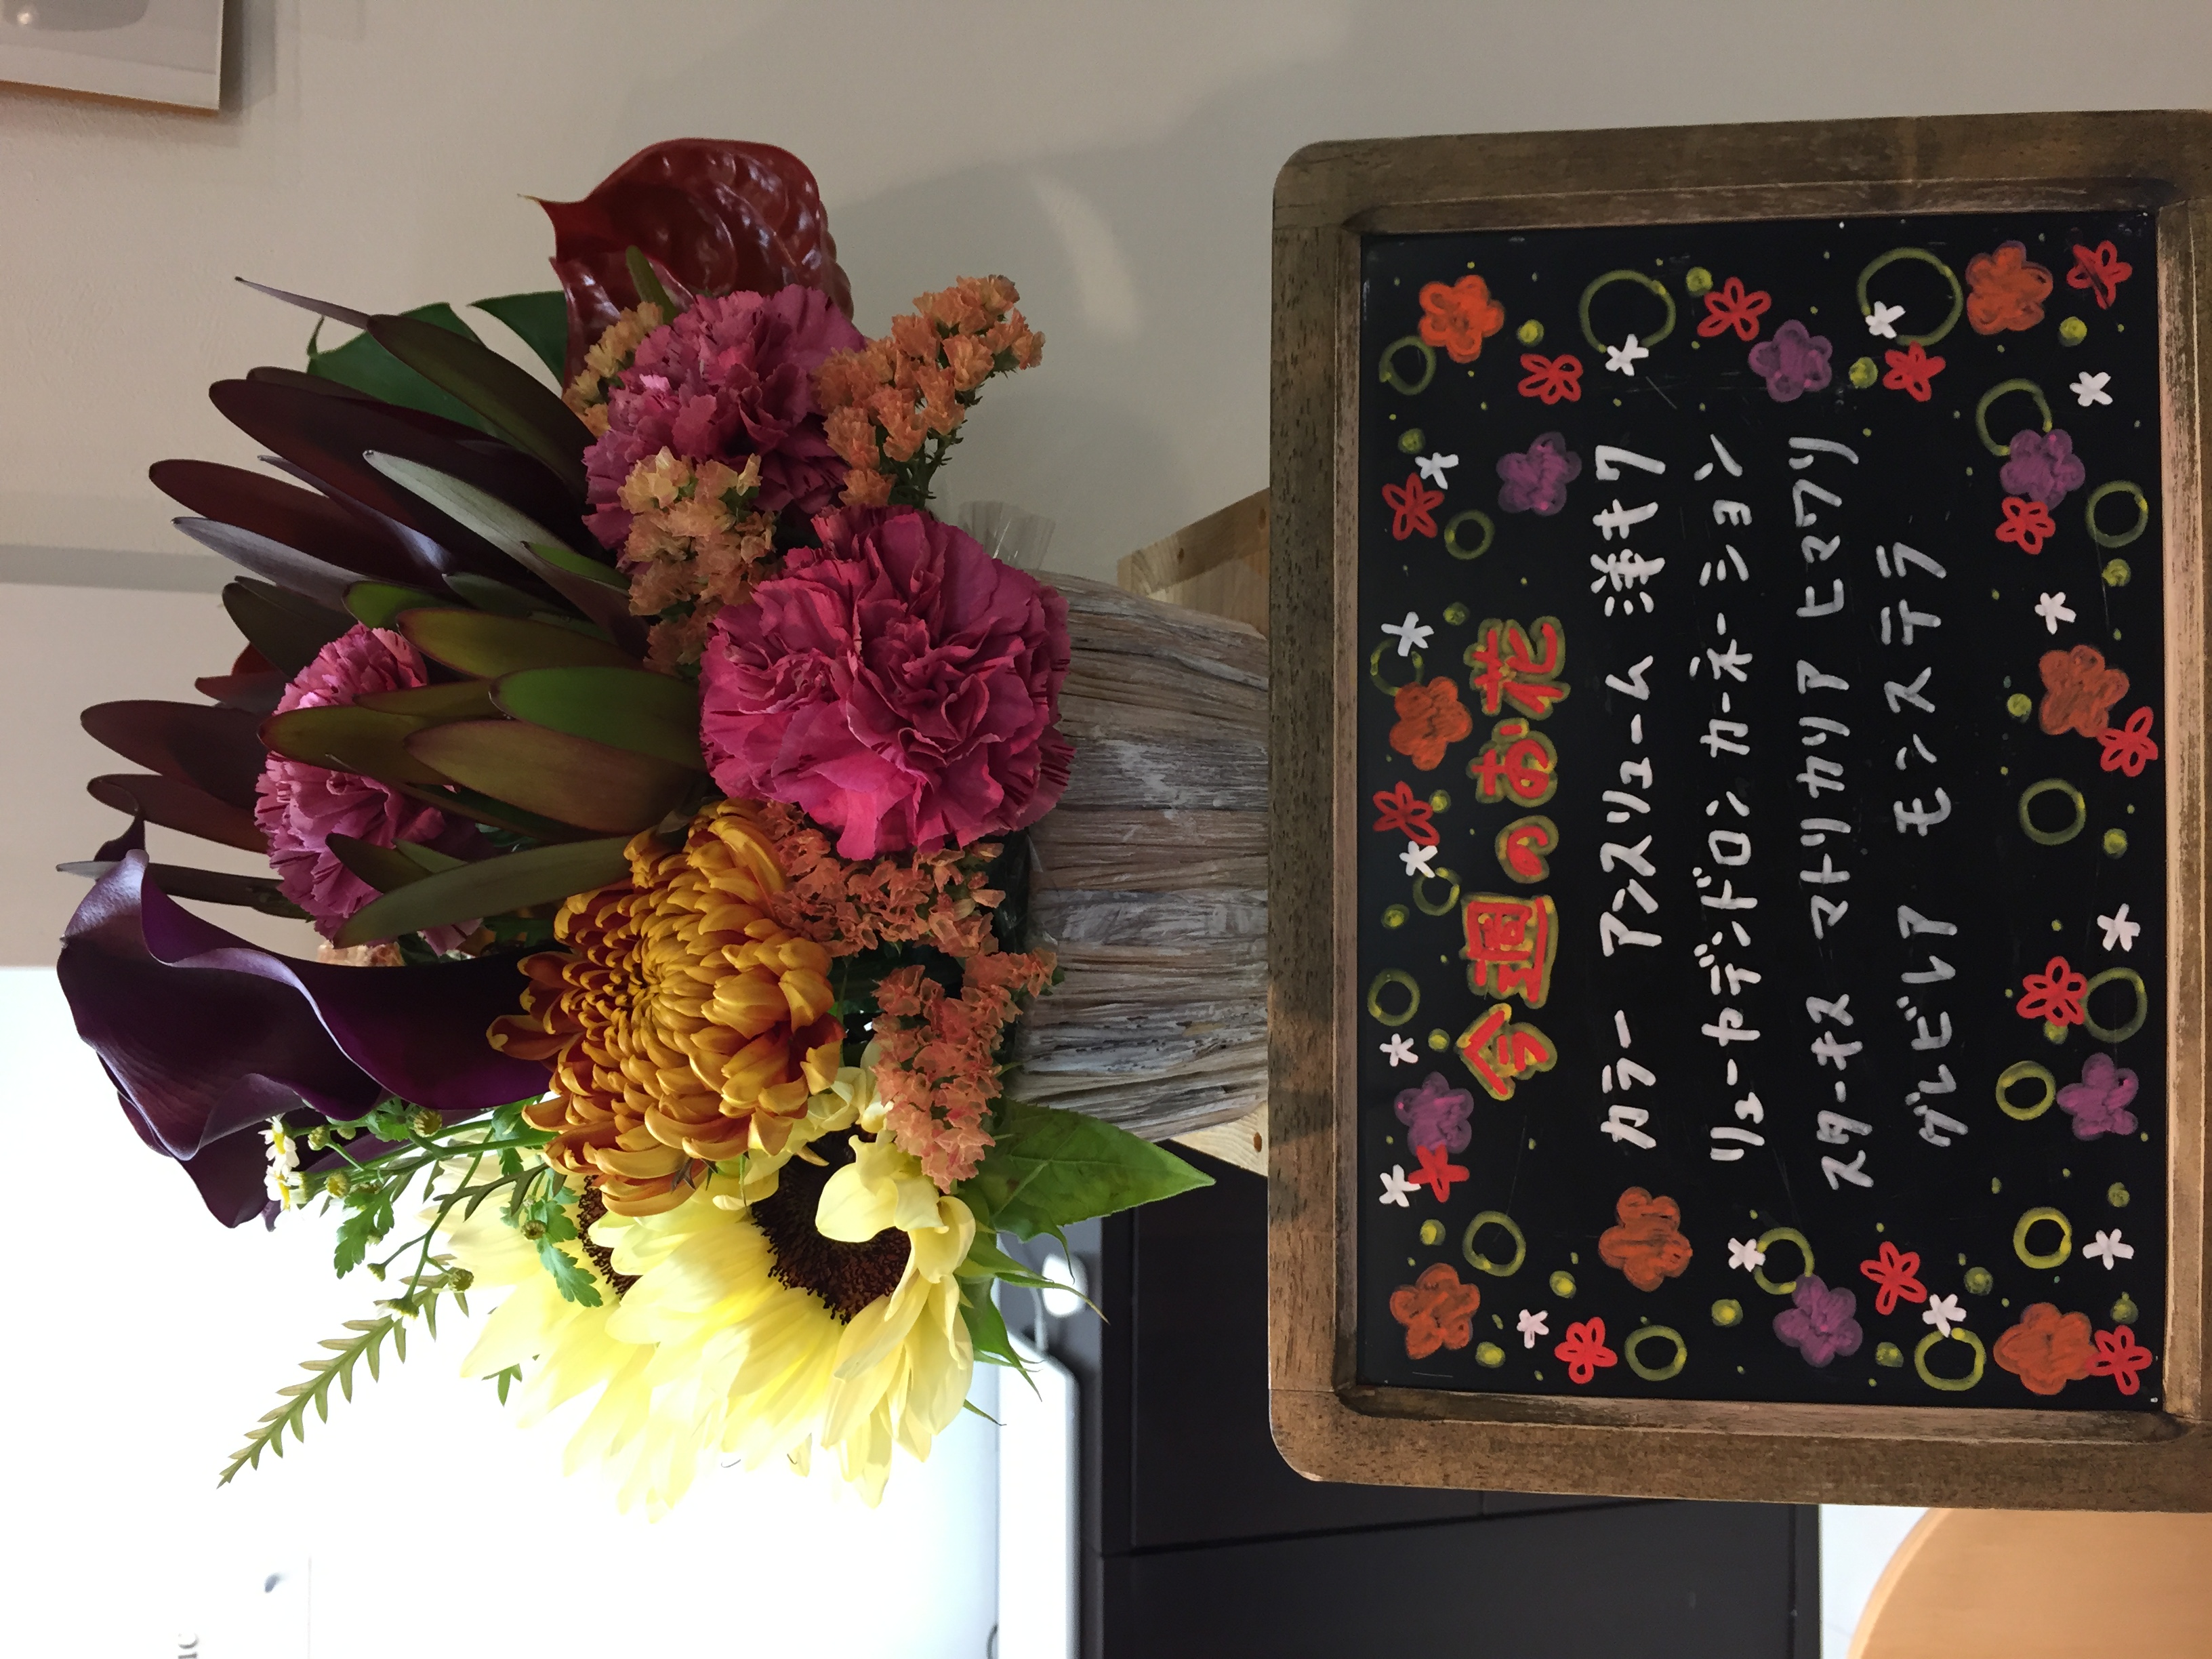 今週のお花
カラー アンスリューム 洋キク
リューカデンドロン カーネーション
スターチス マトリカリア ヒマワリ
グレビレア モンステラ